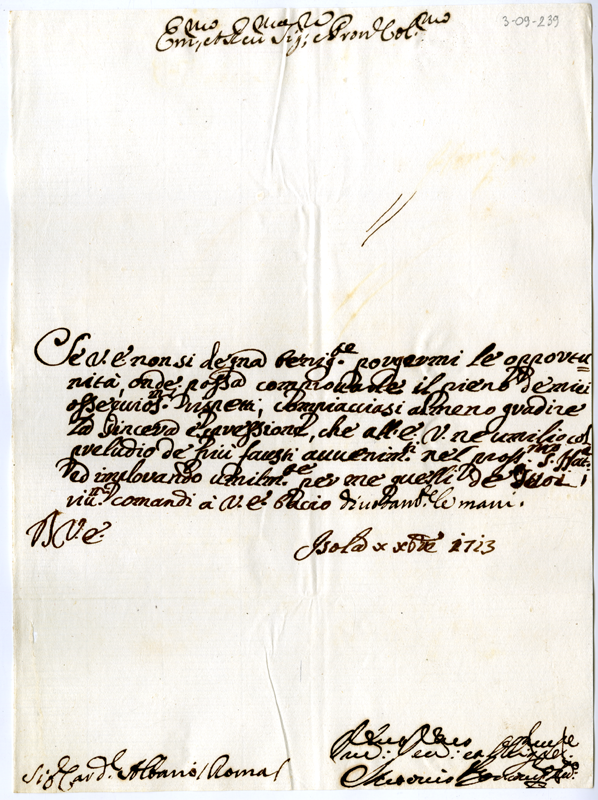 3-09-239
Em.mo et Rev.mo Sig.r e Pron Col.mo
Se V. E. non si degna benig.te porgermi le opportu=
nità, onde possa comprouarle il pieno de miei
ossequios.mi rispetti, compiacciasi almeno gradire
la sincera espressione, che all'E. V. ne umilio col
preludio de più fausti auuenim.ti nel pross.mo S. Nat.e
ed implorando umilm.te per me quelli de suoi
riu.ti comandi à V. E. bacio diuotam.te le mani.
D V. E.
Isola x xbre 1713
Sig.r Card. Albano / Roma /